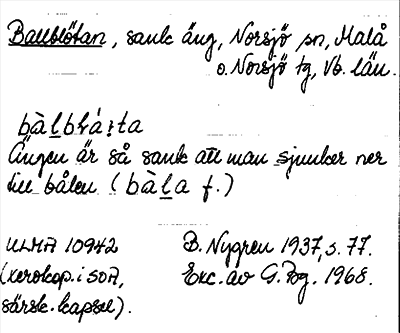 Balblötan, sank äng, Norsjö sn, Malå
o. Norsjö tg, Vb. län.
Ängen är så sank att man sjunker ner
till bålen (bàḷa f.)
ULMA 10942 B. Nygren 1937, s. 77.
(xerokop. i SOA, Exc. av G. Pog. 1968.
särsk. kapsel).